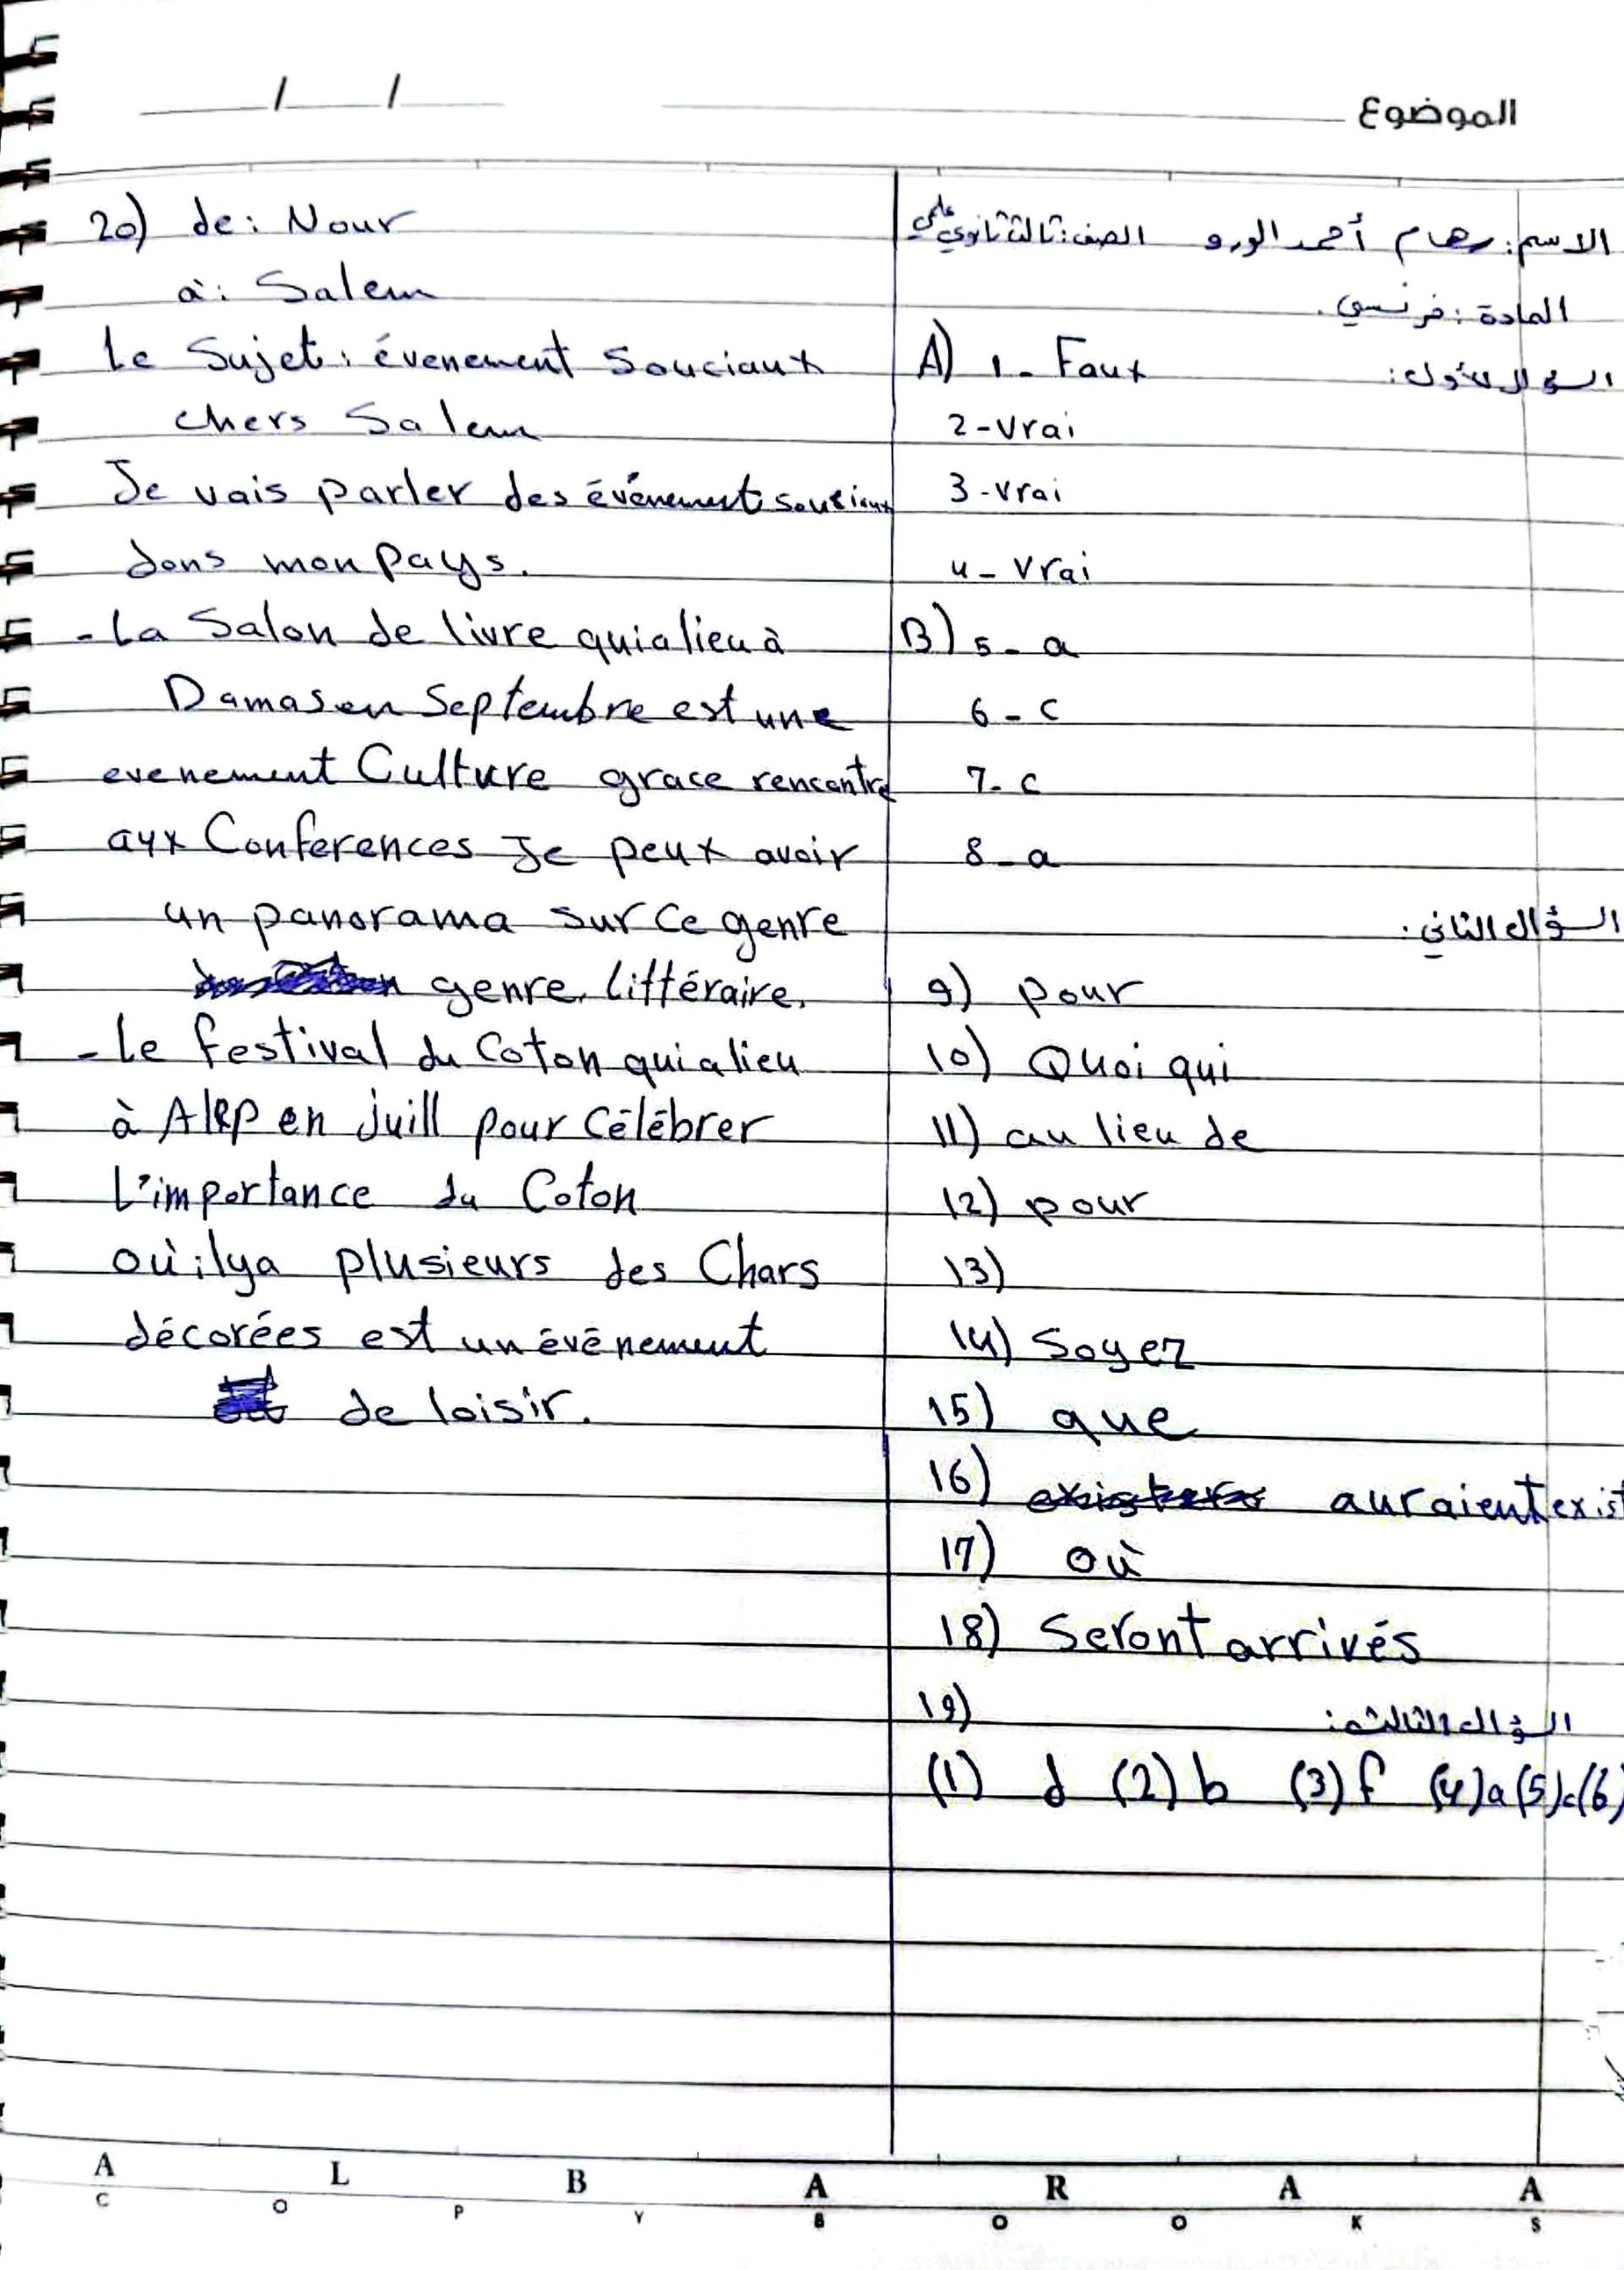 الموضوع
/ /
الاسم: رهام أحمد الورو الصف: ثالث ثانوي علمي
المادة: فرنسي.
السؤال الأول:
A) 1- Faux
2-vrai
3-vrai
4- vrai
B) 5- a
6- c
7- c
8- a
السؤال الثاني:
9) pour
10) Quoi qui
11) au lieu de
12) pour
13)
14) Soyez
15) que
16) auraient exist
17) où
18) Seront arrivés
السؤال الثالث:
19)
(1) d (2) b (3) f (4) a (5) c (6)
20) de: Nour
à: Salem
Le Sujet: évenement Souciaux
chers Salem
Je vais parler des événement souciaux
dans mon pays.
- La Salon de livre qui a lieu à
Damas en Septembre est une
evenement Culture grace rencontre
aux Conferences Je peux avoir
un panorama sur ce genre
genre littéraire.
- Le festival du Coton qui a lieu
à Alep en juill pour Célébrer
L'importance du Coton
où il ya plusieurs des Chars
décorées est un événement
de loisir.
A L B A R A A
C O P Y B O O K S